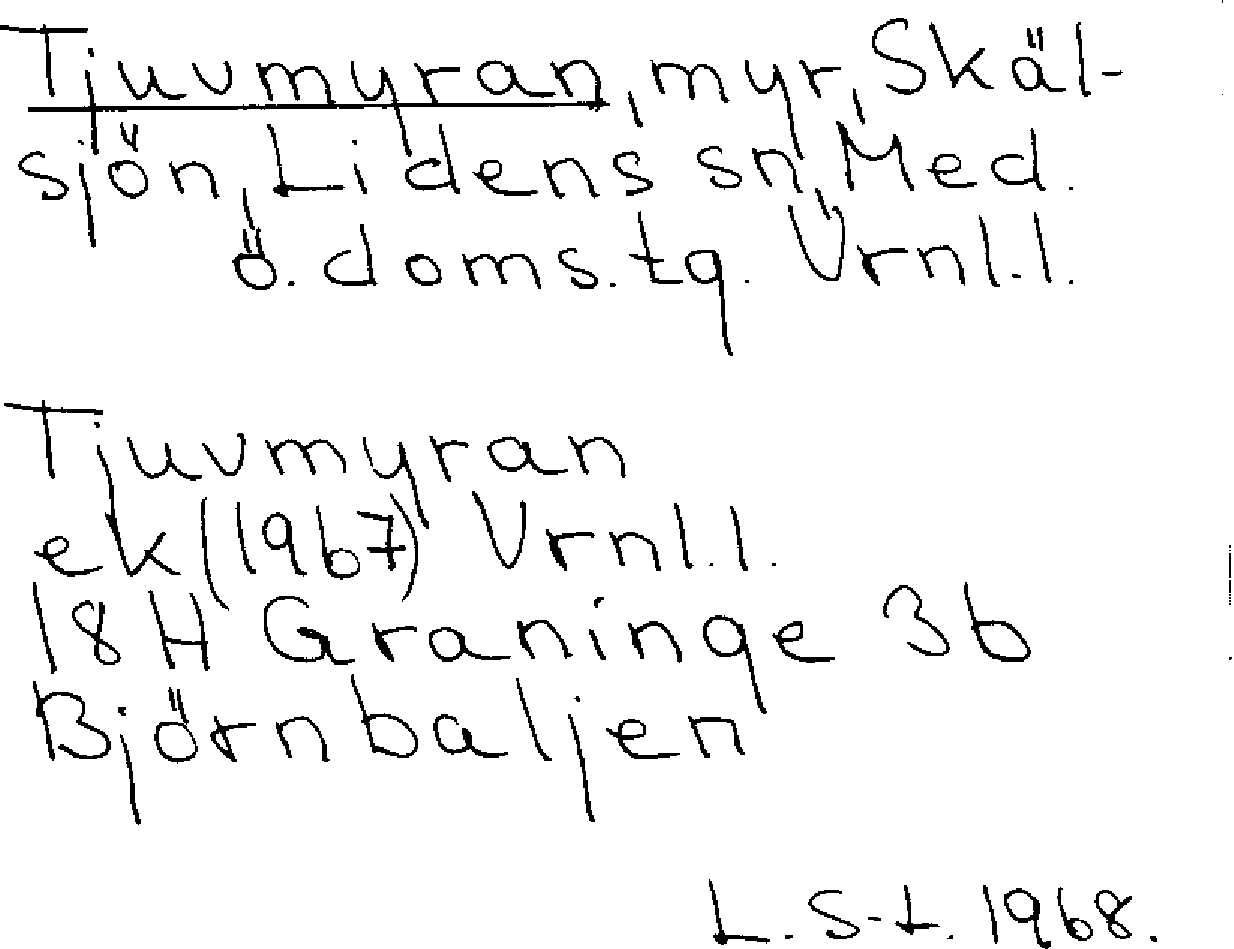 Tjuvmyran, myr, Skäl-
sjön, Lidens sn, Med.
ö. doms. tg. Vrnl.l.
Tjuvmyran
ek (1967) Vrnl.l.
18H Graninge 3b
Björnbaljen
L. S-t. 1968.